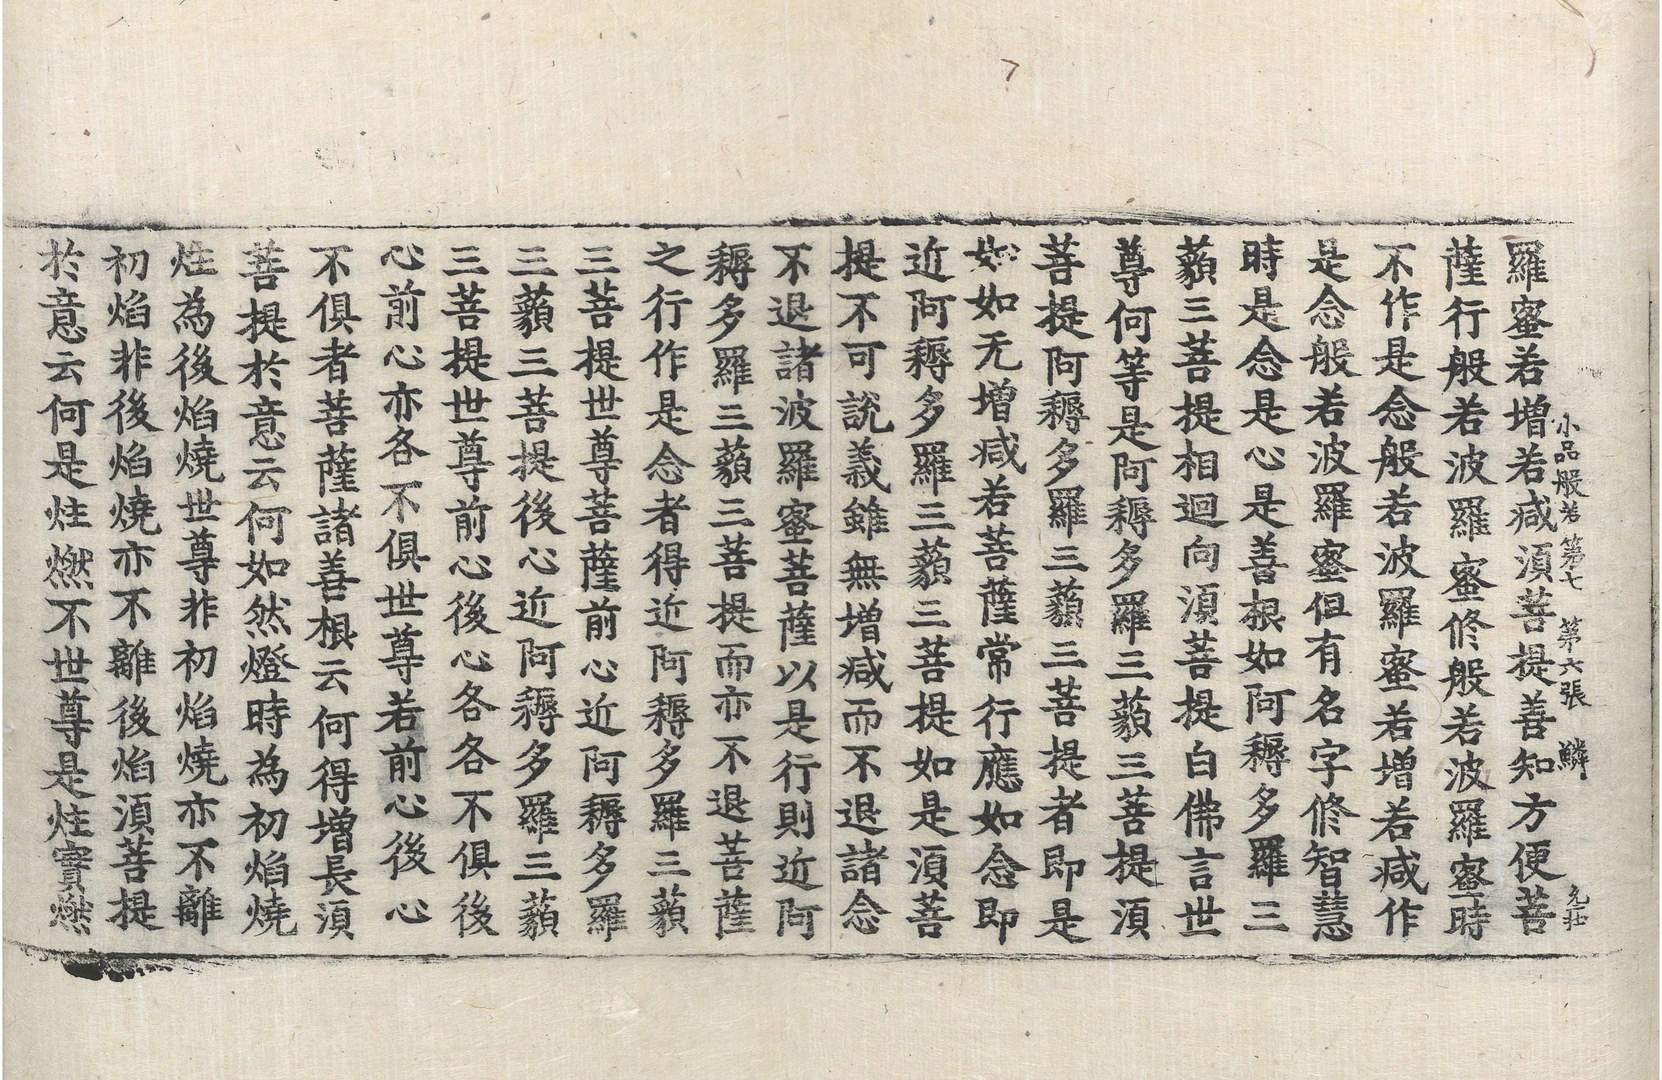 小品般若第七　第六張　鱗　允壯
羅蜜若增若减湏菩提善知方便菩
薩行般若波羅蜜修般若波羅蜜時
不作是念般若波羅蜜若增若减作
是念般若波羅蜜但有名字修智慧
時是念是心是善根如阿耨多羅三
藐三菩提相迴向湏菩提白佛言世
尊何等是阿耨多羅三藐三菩提湏
菩提阿耨多羅三藐三菩提者即是
如如无增减若菩薩常行應如念即
近阿耨多羅三藐三菩提如是湏菩
提不可說義雖無增减而不退諸念
不退諸波羅蜜菩薩以是行則近阿
耨多羅三藐三菩提而亦不退菩薩
之行作是念者得近阿耨多羅三藐
三菩提世尊菩薩前心近阿耨多羅
三藐三菩提後心近阿耨多羅三藐
三菩提世尊前心後心各各不俱後
心前心亦各不俱世尊若前心後心
不俱者菩薩諸善根云何得增長湏
菩提於意云何如然燈時為初焰燒
炷為後焰燒世尊非初焰燒亦不離
初焰非後焰燒亦不離後焰湏菩提
於意云何是炷燃不世尊是炷實燃